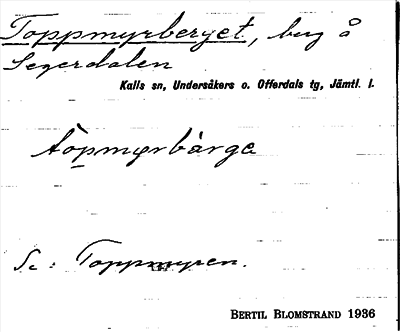 Toppmyrberget, berg å
Segerdalen
Kalls sn, Undersåkers o. Offerdals tg, Jämtl. l.
tòpmyrbàrge
Se: Toppmyren.
BERTIL BLOMSTRAND 1936